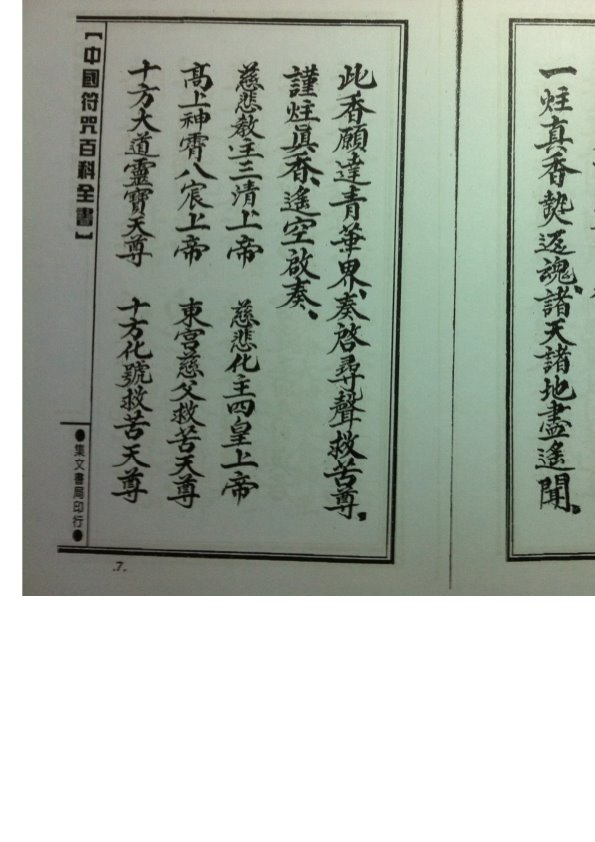 一炷真香爇返魂、諸天諸地盡遙聞。
此香願達青華界、奏啓尋聲救苦尊。
謹炷眞香、遙空啟奏、
慈悲教主三清上帝 慈悲化主四皇上帝
高上神霄八宸上帝 東宮慈父救苦天尊
十方大道靈寶天尊 十方化號救苦天尊
【中國符咒百科全書】
●集文書局印行●
.7.